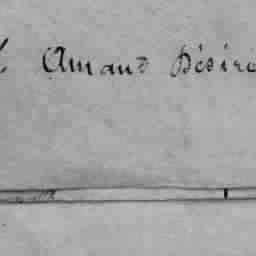 Amand Désiré